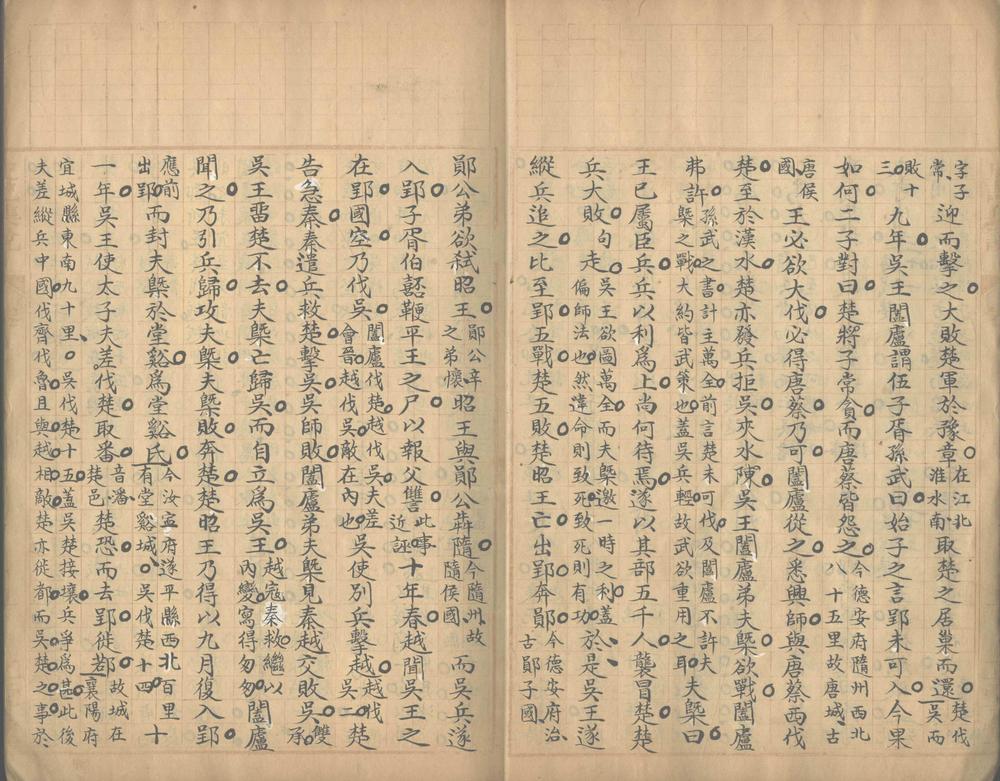 字子常迎而擊之大敗楚軍於豫章在江北淮水南取楚之居巢而還楚伐吳而
敗十三九年吳王闔廬謂伍子胥孫武曰始子之言郢未可入今果
如何二子對曰楚將子常貪而唐蔡皆怨之今德安府隨州西北八十五里故唐城古
唐侯國王必欲大伐必得唐蔡乃可闔廬從之悉興師與唐蔡西伐
楚至於漢水楚亦發兵拒吳夾水陳吳王闔廬弟夫槩欲戰闔廬
弗許孫武之書計主萬全前言楚未可伐及闔廬不許夫槩之戰大約皆武策也蓋吳兵輕故武欲重用之耳夫槩曰
王已屬臣兵兵以利爲上尚何待焉遂以其部五千人襲冒楚楚
兵大敗句走吳王欲圖萬全而夫槩邀一時之利蓋偏師法也然違命則致死致死則有功於是吳王遂
縱兵追之比至郢五戰楚五敗楚昭王亡出郢奔鄖今德安府治古鄖子國
鄖公弟欲弒昭王鄖公辛之弟懷昭王與鄖公犇隨今隨州故隨侯國而吳兵遂
入郢子胥伯嚭鞭平王之尸以報父讐此事近誣十年春越聞吳王之
在郢國空乃伐吳闔廬伐楚越伐吳夫差會晉越伐吳敵在內也吳使別兵擊越越伐吳二楚
告急秦秦遣兵救楚擊吳吳師敗闔廬弟夫槩見秦越交敗吳雙承
吳王畱楚不去夫槩亡歸吳而自立爲吳王越寇秦救繼以內變寫得匆匆闔廬
聞之乃引兵歸攻夫槩夫槩敗奔楚楚昭王乃得以九月復入郢
應前出郢而封夫槩於堂谿爲堂谿氏今汝寧府遂平縣西北百里有堂谿城吳伐楚十四十
一年吳王使太子夫差伐楚取番音潘楚邑楚恐而去郢徙鄀故城在襄陽府
宜城縣東南九十里吳伐楚十五蓋吳楚接壤兵爭爲甚此後
夫差縱兵中國伐齊伐魯且與越相敵楚亦徙都而吳楚之事於